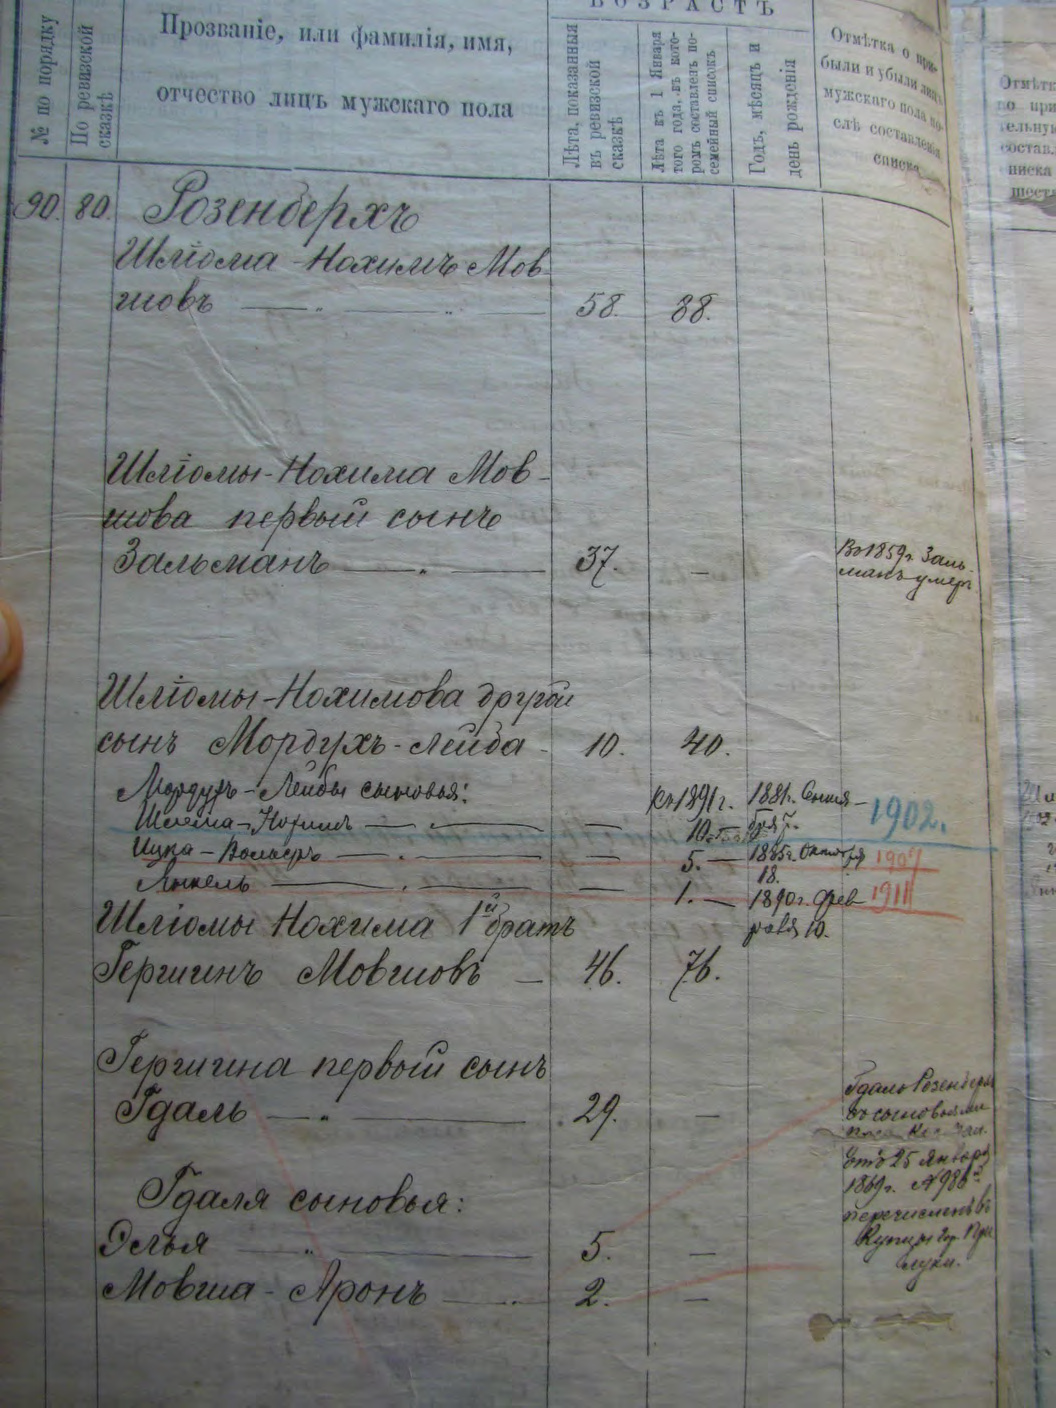 ВОЗРАСТЪ
№ по порядку
По ревизской сказкѣ
Прозваніе, или фамилія, имя,
отчество лицъ мужскаго пола
Лѣта, показанныя
въ ревизской
сказкѣ
Лѣта къ 1 Января
того года, въ кото-
ромъ составленъ по-
семейный списокъ
Годъ, мѣсяцъ и
день рожденія
Отмѣтка о при-
были и убыли лицъ
мужскаго пола по-
слѣ составленія
списка
90. 80. Розенберхъ
Шліома Нохимъ Мов-
шовъ 58. 88.
Шліомы-Нохима Мов-
шова первый сынъ
Зальманъ 37. —
Въ 1859 г. Заль-
манъ умеръ
Шліомы-Нохимова другой
сынъ Мордухъ-Лейба 10. 40.
Мордухъ-Лейбы сыновья: къ 1891 г. 1881 г. Сентя-
Шлема-Нохимъ — 10. бря 7. 1902.
Ицка-Вольфъ — 5. — 1885 г. Октября 18. 1907
Янкель — 1. — 1890 г. Фев-
раля 10. 1911
Шліомы Нохима 1й братъ
Гершинъ Мовшовъ — 46. 76.
Гершина первый сынъ
Гдаль 29. —
Гдаль Розенберхъ
съ сыновьями
отъ 25 Января
1869 г. № 986
перечисленъ въ
Купцы гор. При
луки.
Гдаля сыновья:
Элья 5. —
Мовша-Аронъ 2. —